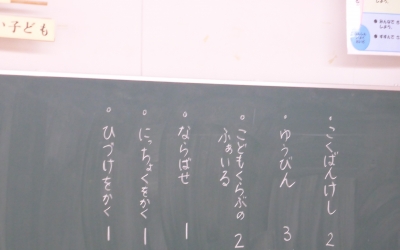 い子ども
。こくばんけし 2
。ゆうびん 3
。こどもくらぶの
ふぁいる 2
。ならばせ 1
。にっちょくをかく 1
。ひづけをかく 1